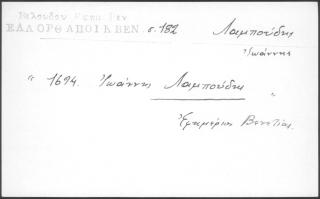 Βελούδου
ΕΛΛ ΟΡΘ ΑΠΟΙΚ ΒΕΝ. σ. 182 Λαμπούδης
Ἰωάννης
" 1694. Ἰωάννης Λαμπούδης "
Ἐφημέριος Βενετίας.